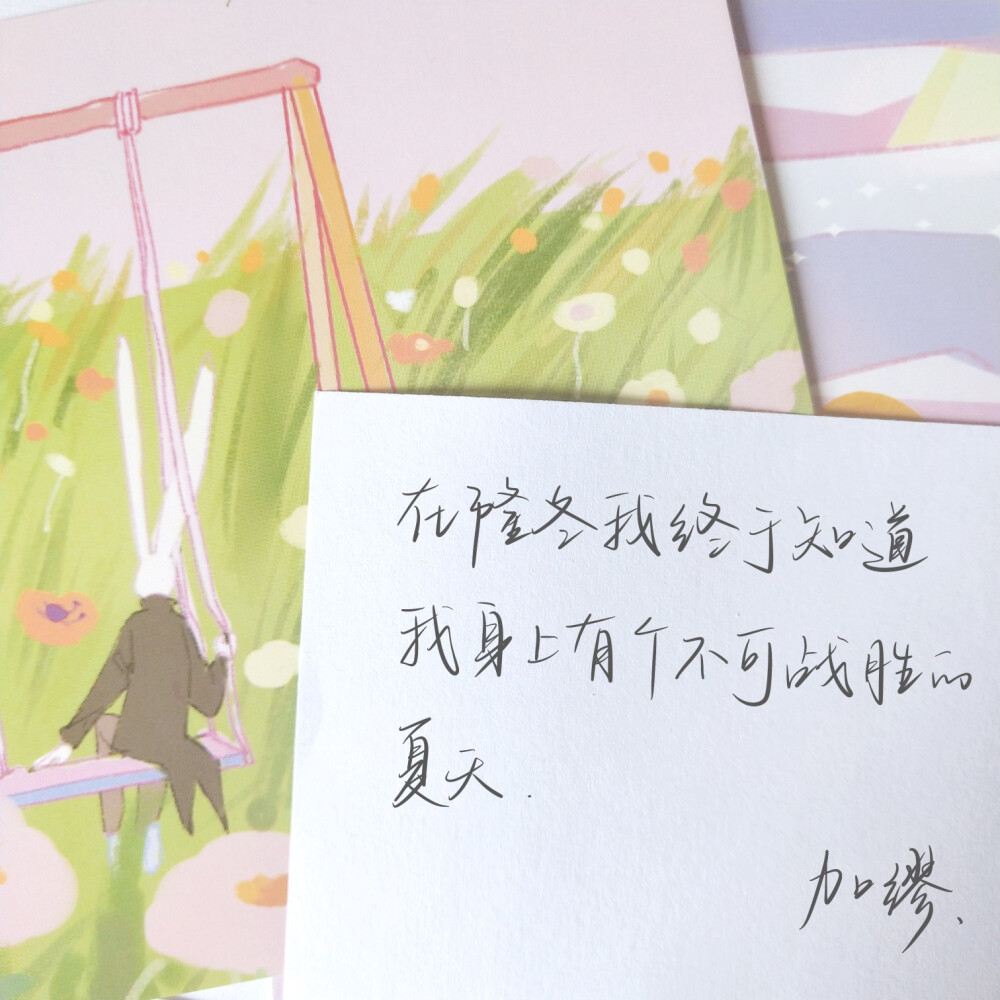 在隆冬我终于知道
我身上有个不可战胜的
夏天.
加缪、